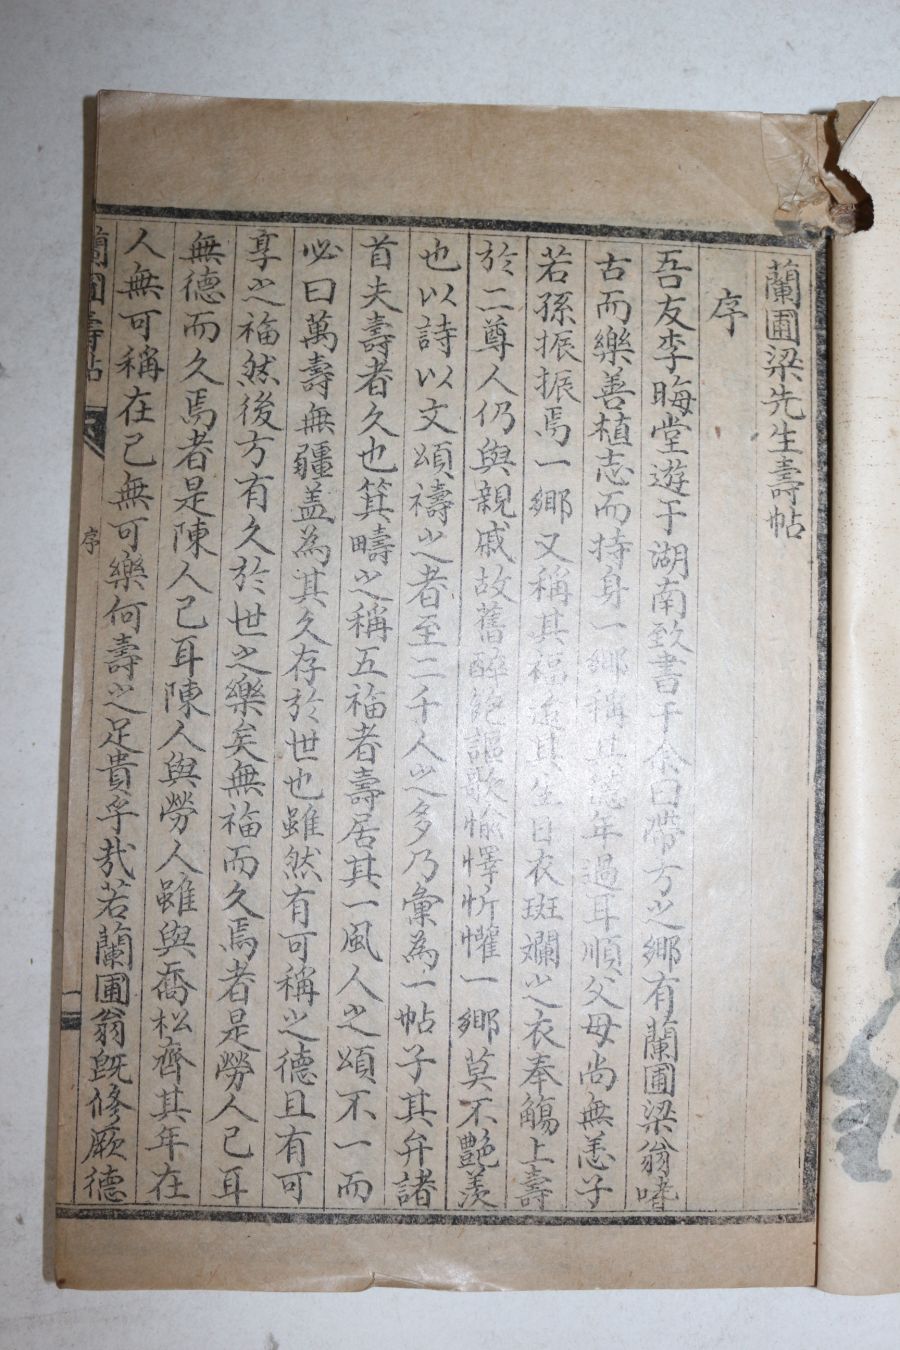 蘭圃梁先生壽帖
序
吾友李晦堂遊于湖南致書于余曰帶方之鄉有蘭圃梁翁嗜
古而樂善植志而持身一鄉稱其德年過耳順父母尚無恙子
若孫振振焉一鄉又稱其福迨其生日衣斑斕之衣奉觴上壽
於二尊人仍與親戚故舊醉飽謳歌愉懌忻懽一鄉莫不艶羨
也以詩以文頌禱之者至二千人之多乃彙為一帖子其弁諸
首夫壽者久也箕疇之稱五福者壽居其一風人之頌不一而
必曰萬壽無疆盖為其久存於世也雖然有可稱之德且有可
享之福然後方有久於世之樂矣無福而久焉者是勞人已耳
無德而久焉者是陳人已耳陳人與勞人雖與喬松齊其年在
人無可稱在己無可樂何壽之足貴乎哉若蘭圃翁旣修厥德
蘭圃壽帖
序
一